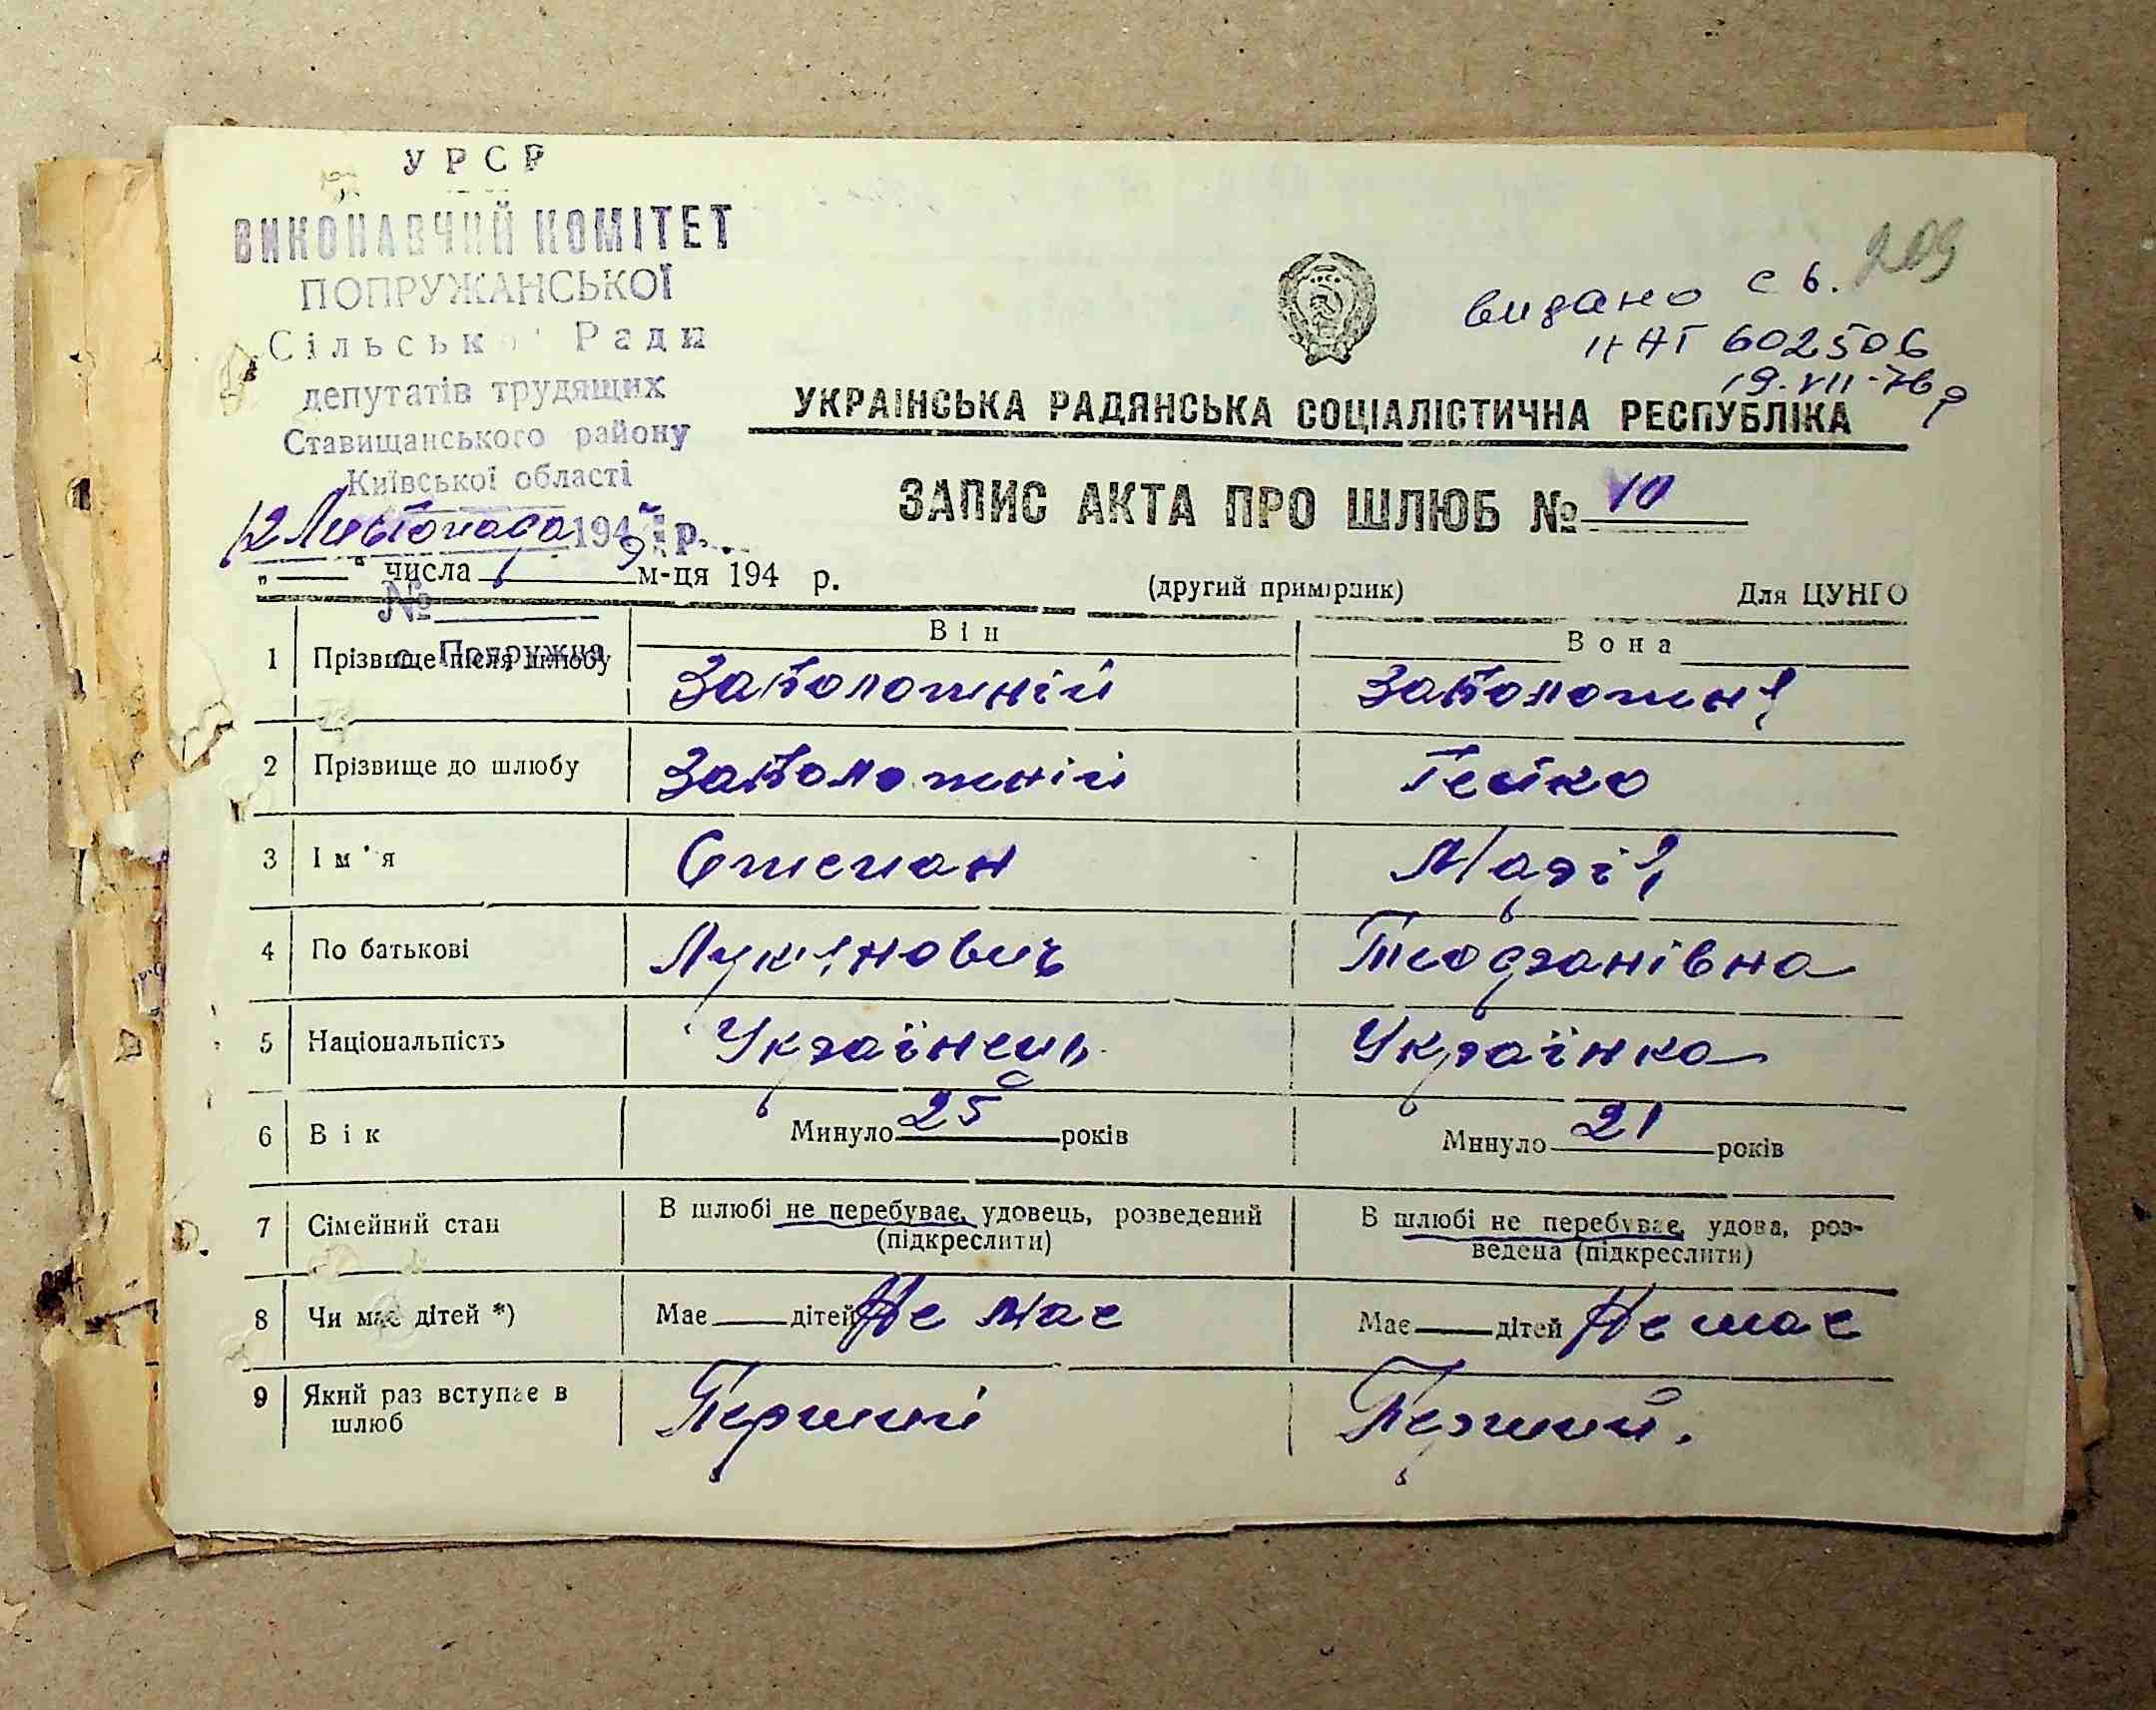 У Р С Р
ВИКОНАВЧИЙ КОМІТЕТ
ПОПРУЖАНСЬКОЇ
Сільської Ради
депутатів трудящих
Ставищанського району
Київської області
12 Листопада 194 р.
№
с. Попружна
209
видано св.
602506
19.VII-76р
УКРАЇНСЬКА РАДЯНСЬКА СОЦІАЛІСТИЧНА РЕСПУБЛІКА
ЗАПИС АКТА ПРО ШЛЮБ № 10
„ “ числа м-ця 194 р.
(другий примірник) Для ЦУНГО
Він Вона
1 Прізвище після шлюбу Заболотній Заболотня
2 Прізвище до шлюбу Заболотній Гейко
3 Ім'я Степан Марія
4 По батькові Лук'янович
5 Національність Українець Українка
6 Вік Минуло 25 років Минуло 21 років
7 Сімейний стан В шлюбі не перебуває, удовець, розведений (підкреслити) В шлюбі не перебуває, удова, роз-
ведена (підкреслити)
8 Чи має дітей *) Має дітей Не має Має дітей Не має
9 Який раз вступає в шлюб Перший Перший.